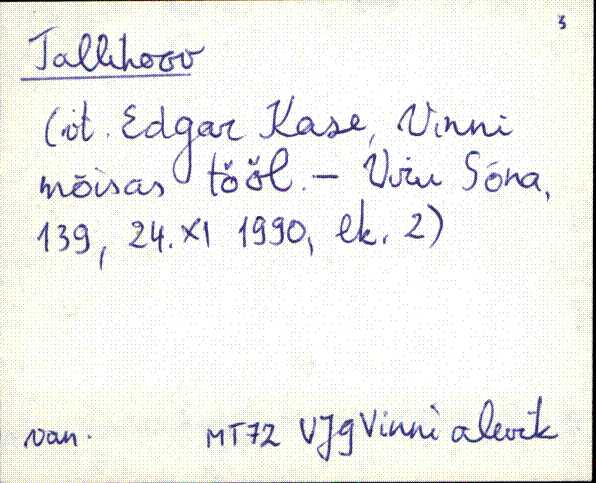 3
Tallihoov
(vt. Edgar Kase, Vinni
mõisas tööl. - Viru Sõna,
139, 24. XI 1990, lk. 2)
van.
MT72 VJg Vinni alevik